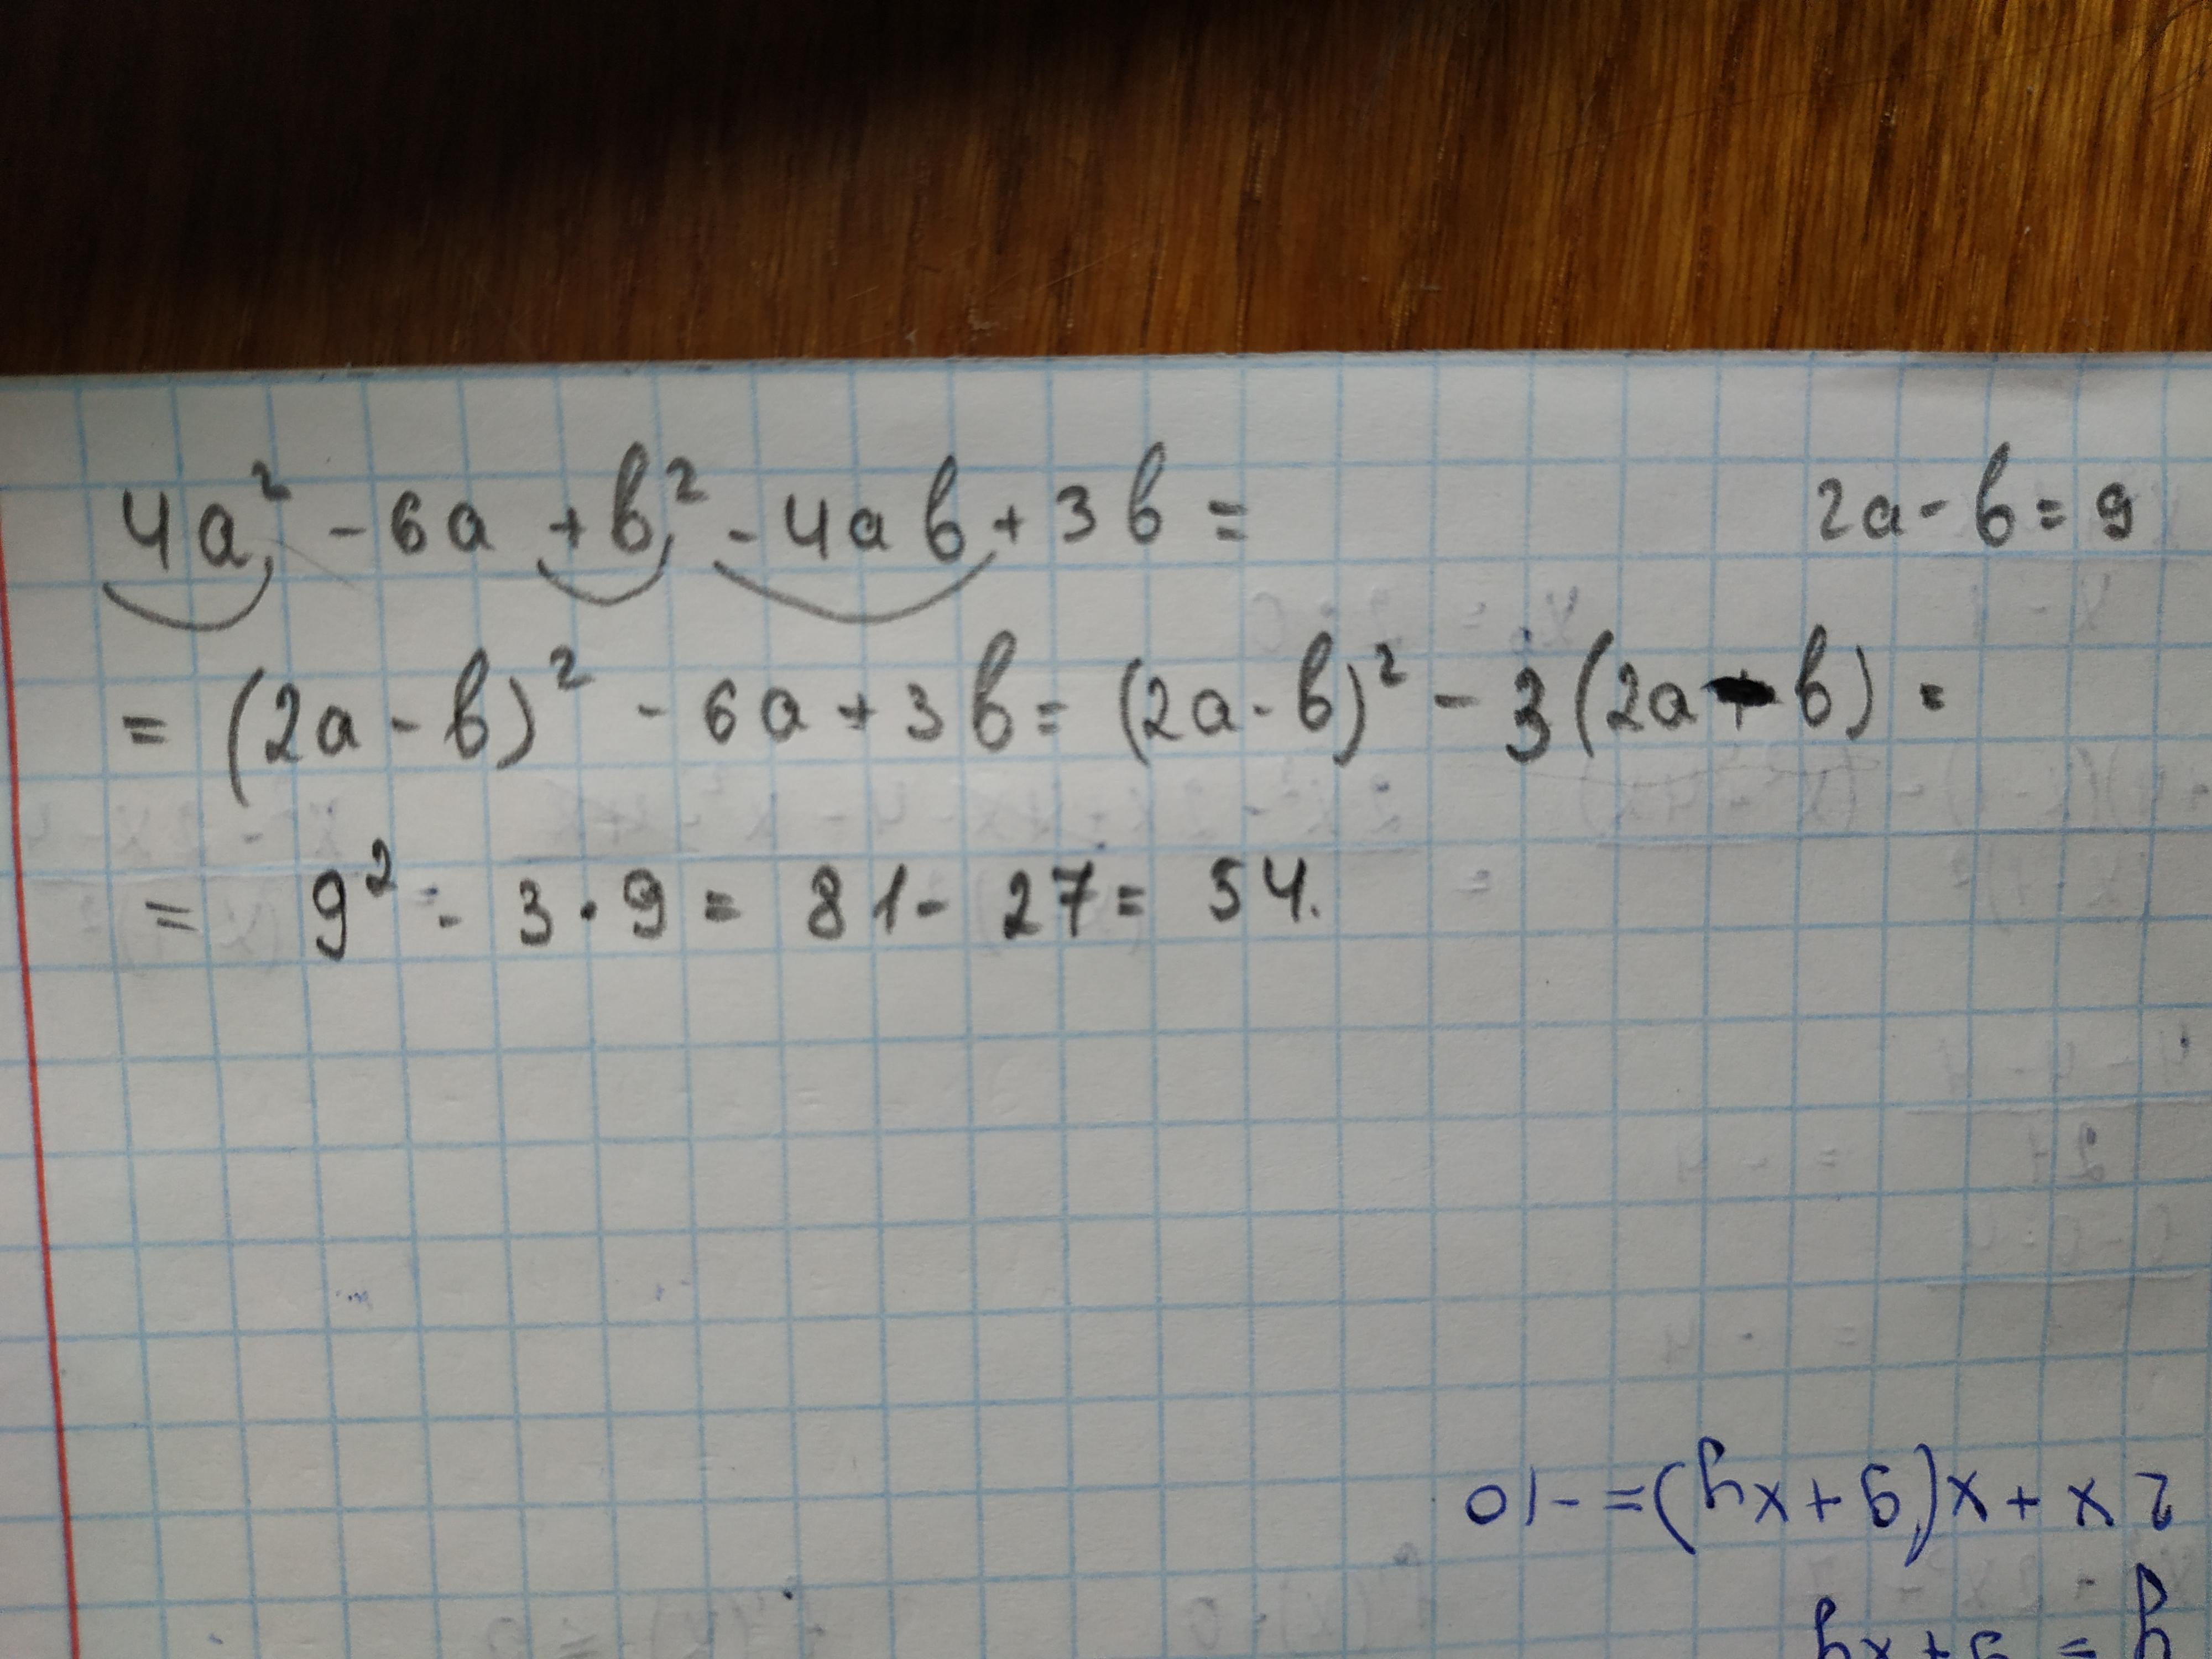 4a² - 6a + b² - 4ab + 3b = 2a - b = 9
= (2a - b)² - 6a + 3b = (2a - b)² - 3(2a - b) =
= 9² - 3·9 = 81 - 27 = 54.
2x + x(9 + xy) = -10